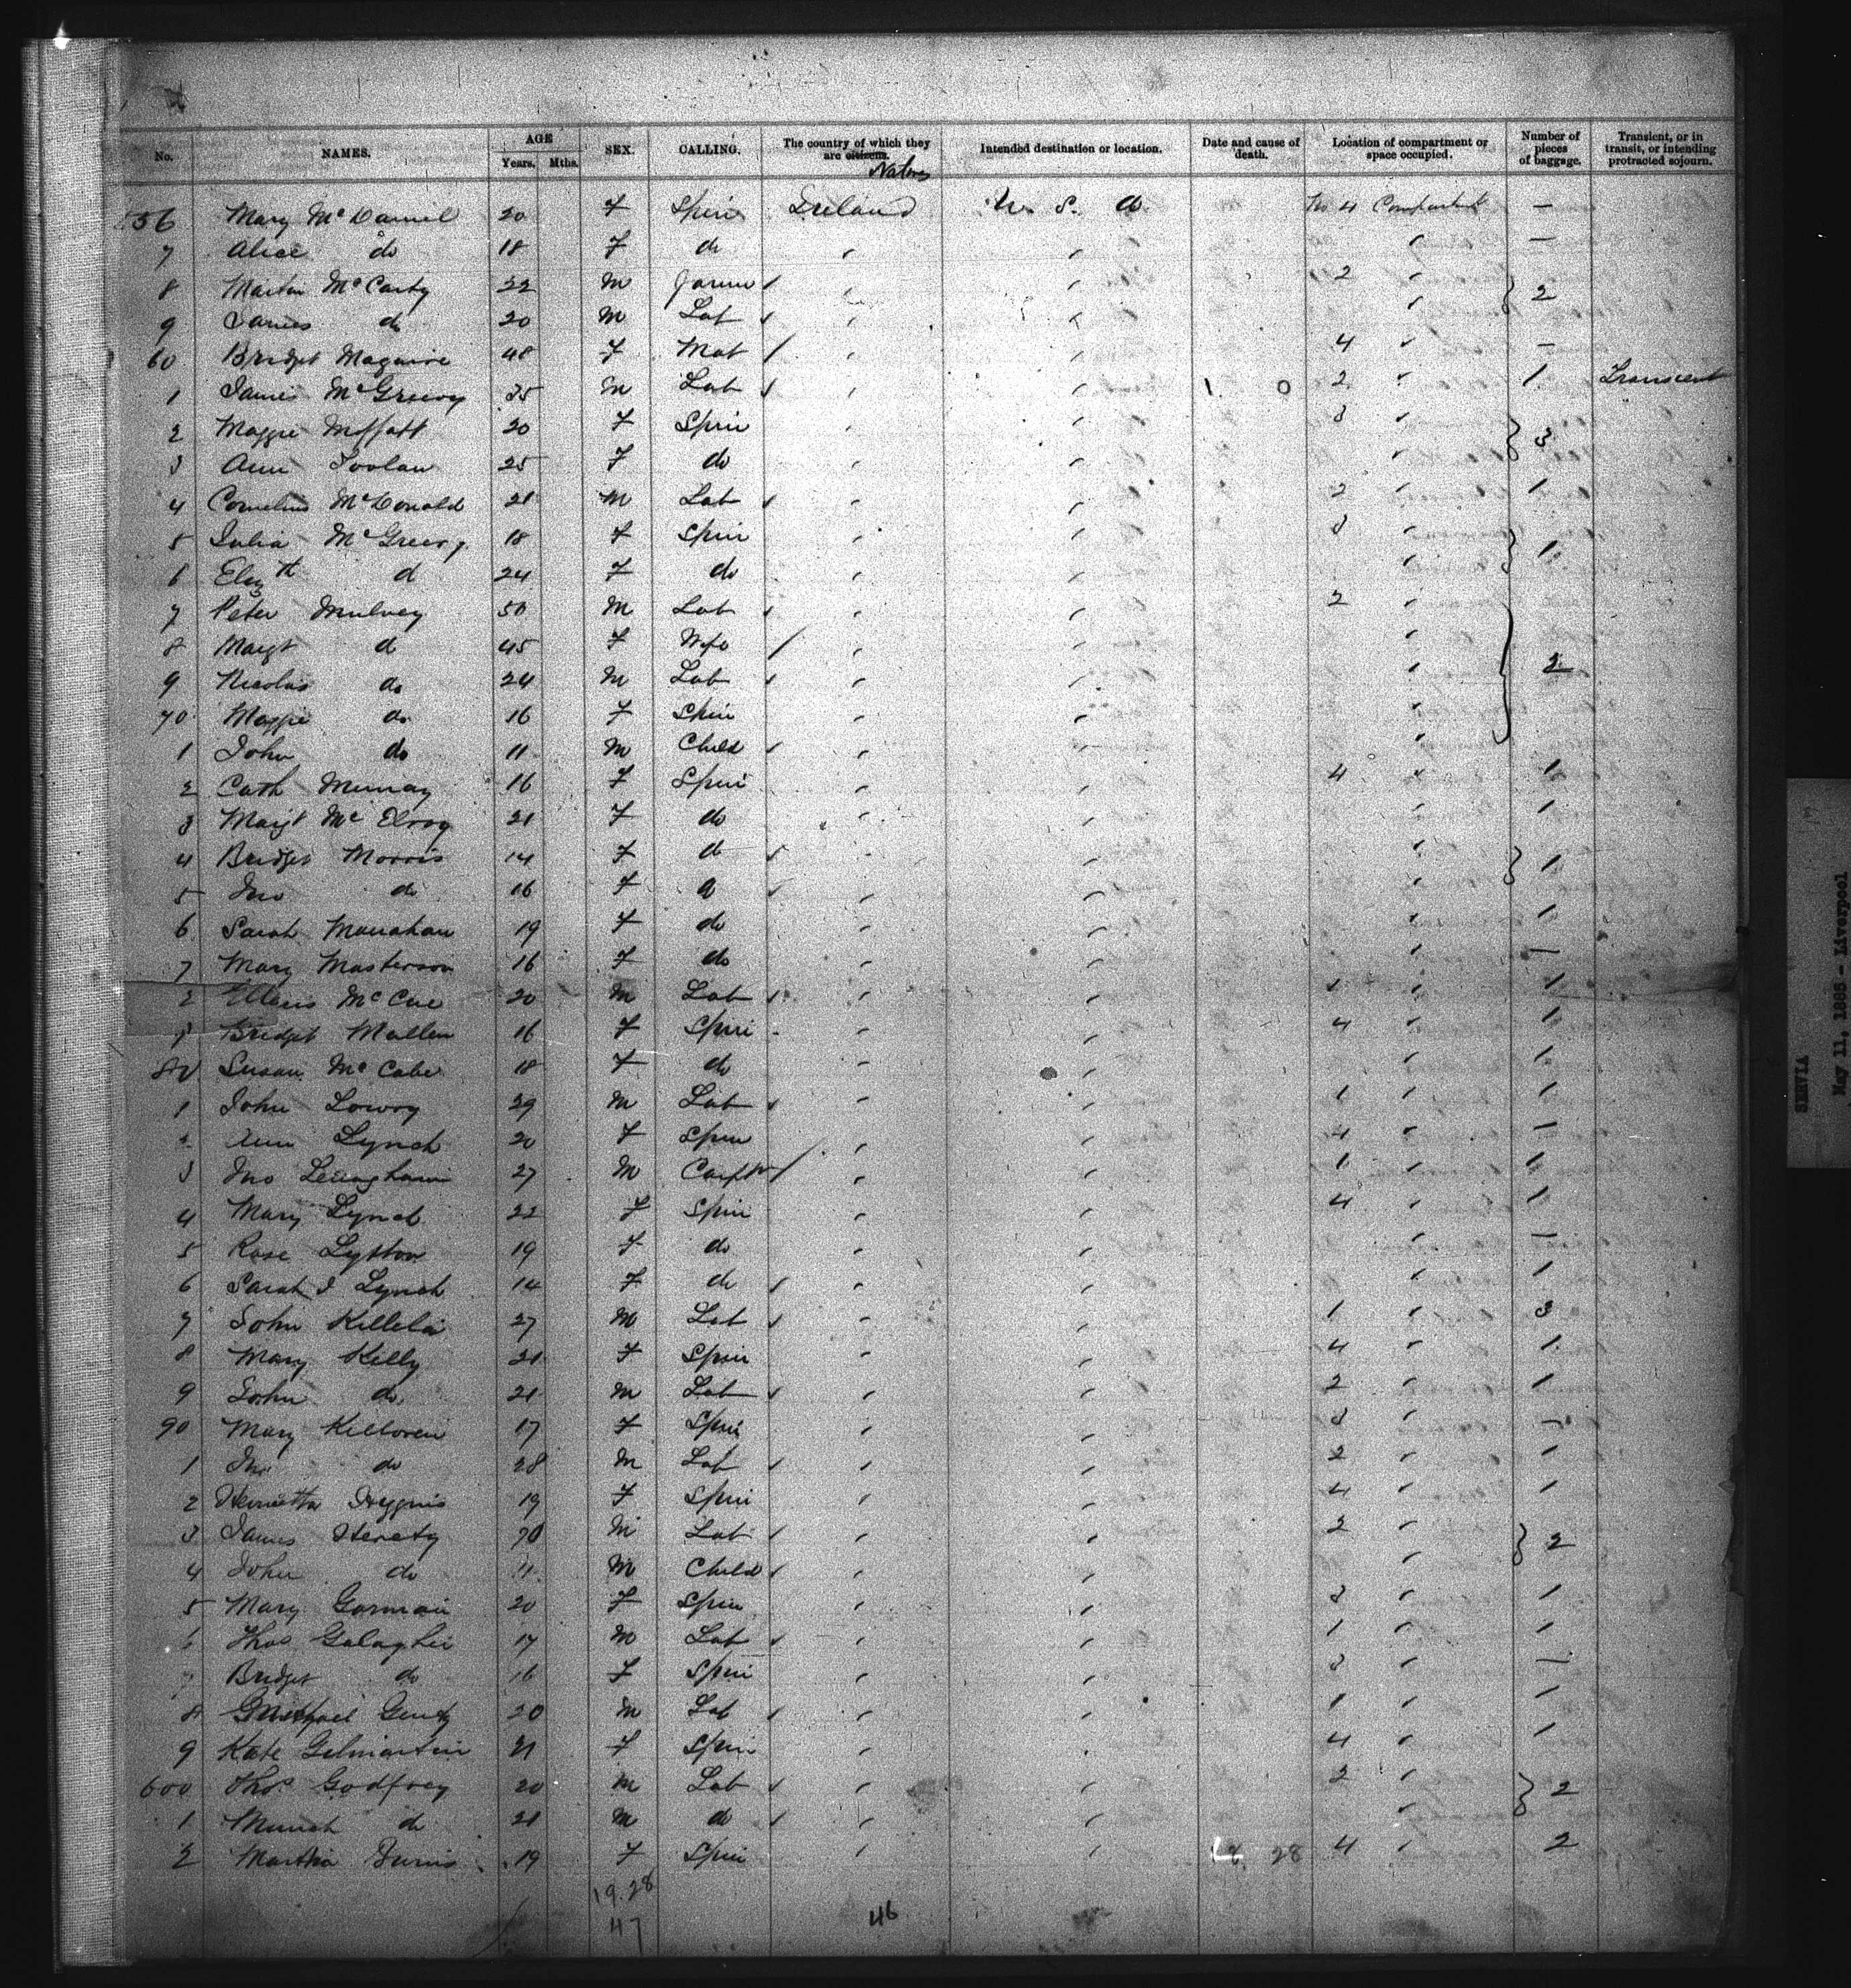 No. NAMES. AGE Years. Mths. SEX. CALLING. The country of which they are citizens. Natives Intended destination or location. Date and cause of death. Location of compartment or space occupied. Number of pieces of baggage. Transient, or in transit, or intending protracted sojourn.
556 Mary McDaniel 20 F Spin Ireland U. S. a No 4 Compartment —
7 Alice do 18 F do " " " —
8 Martin McCarty 22 M Farmer " " 2 " } 2
9 James do 20 M Lab " " "
60 Bridget Maguire 48 F Mat " " 4 " —
1 James McGreevy 35 M Lab " " 2 " 1 Transient
2 Maggie Moffatt 20 F Spin " " 3 " } 3
3 Ann Toolan 25 F do " " "
4 Cornelius McDonald 21 M Lab " " 2 " 1
5 Julia McGreevy 18 F Spin " " 3 " } 1
6 Elizth d 24 F do " " "
7 Peter Mulvey 50 M Lab " " 2 " } 2
8 Margt d 45 F Wife " " "
9 Nicolas do 24 M Lab " " "
70 Maggie do 16 F Spin " " "
1 John do 11 M Child " " "
2 Cath Murray 16 F Spin " " 4 " 1
3 Margt McElroy 21 F do " " " 1
4 Bridget Morris 14 F d " " " } 1
5 Jno do 16 F d " " "
6 Sarah Monahan 19 F do " " " 1
7 Mary Masterson 16 F do " " " —
McCue 20 M Lab " " " 1
Bridget Mullen 16 F Spin " " 4 " 1
80 Susan McCabe 18 F do " " " 1
1 John Lowry 29 M Lab " " 1 " 1
2 Ann Lynch 20 F Spin " " 4 " 1
3 Jno 27 M Carptr " " 1 " 1
4 Mary Lynch 22 F Spin " " 4 " 1
5 Rose Lyston 19 F do " " " —
6 Sarah J Lynch 14 F do " " " 1
7 John Killelia 27 M Lab " " 1 " 3
8 Mary Kelly 21 F Spin " " 4 " 1
9 John do 21 M Lab " " 2 " 1
90 Mary Killoren 17 F Spin " " 3 " —
1 Jno do 28 M Lab " " 2 " 1
2 Henrietta Higgins 19 F Spin " " 4 " 1
3 James Herety 70 M Lab " " 2 " } 2
4 John do 11 M Child " " "
5 Mary Gorman 20 F Spin " " 3 " 1
6 Thos Galagher 17 M Lab " " 1 " 1
7 Bridget do 16 F Spin " " 3 " —
8 Genty 20 M Lab " " 1 " 1
9 Kate Gilmartin 21 F Spin " " 4 " 1
600 Thos Godfrey 20 M Lab " " 2 " } 2
1 do 21 M do " " "
2 Martha 19 F Spin " " 28 4 " 2
19.28
47 46
SERVIA
May 11, 1885 - Liverpool